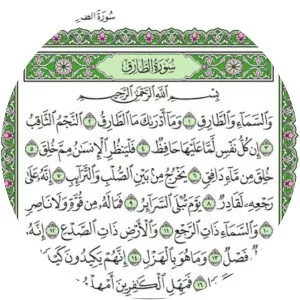 سُورَةُ الطَّارِقِ
بِسْمِ اللَّهِ الرَّحْمَٰنِ الرَّحِيمِ
وَالسَّمَاءِ وَالطَّارِقِ ١ وَمَا أَدْرَاكَ مَا الطَّارِقُ ٢ النَّجْمُ الثَّاقِبُ
٣ إِن كُلُّ نَفْسٍ لَّمَّا عَلَيْهَا حَافِظٌ ٤ فَلْيَنظُرِ الْإِنسَانُ مِمَّ خُلِقَ ٥
خُلِقَ مِن مَّاءٍ دَافِقٍ ٦ يَخْرُجُ مِن بَيْنِ الصُّلْبِ وَالتَّرَائِبِ ٧ إِنَّهُ عَلَىٰ
رَجْعِهِ لَقَادِرٌ ٨ يَوْمَ تُبْلَى السَّرَائِرُ ٩ فَمَا لَهُ مِن قُوَّةٍ وَلَا نَاصِرٍ
١٠ وَالسَّمَاءِ ذَاتِ الرَّجْعِ ١١ وَالْأَرْضِ ذَاتِ الصَّدْعِ ١٢ إِنَّهُ
فَصْلٌ ١٣ وَمَا هُوَ بِالْهَزْلِ ١٤ إِنَّهُمْ يَكِيدُونَ
١٦ فَمَهِّلِ الْكَافِرِينَ